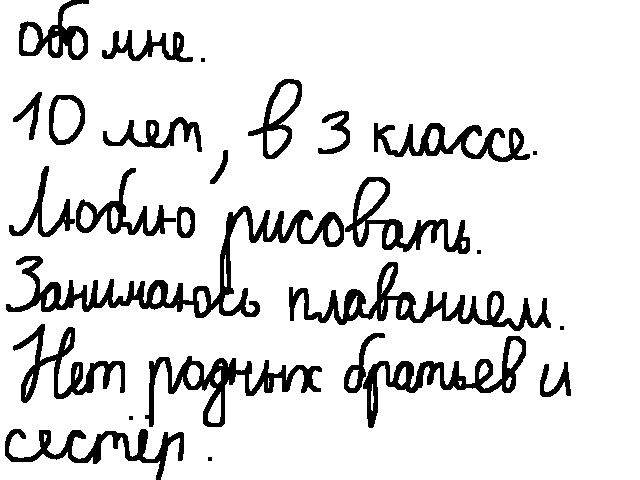 обо мне.
10 лет, в 3 классе.
Люблю рисовать.
Занимаюсь плаванием.
Нет родных братьев и
сестёр.